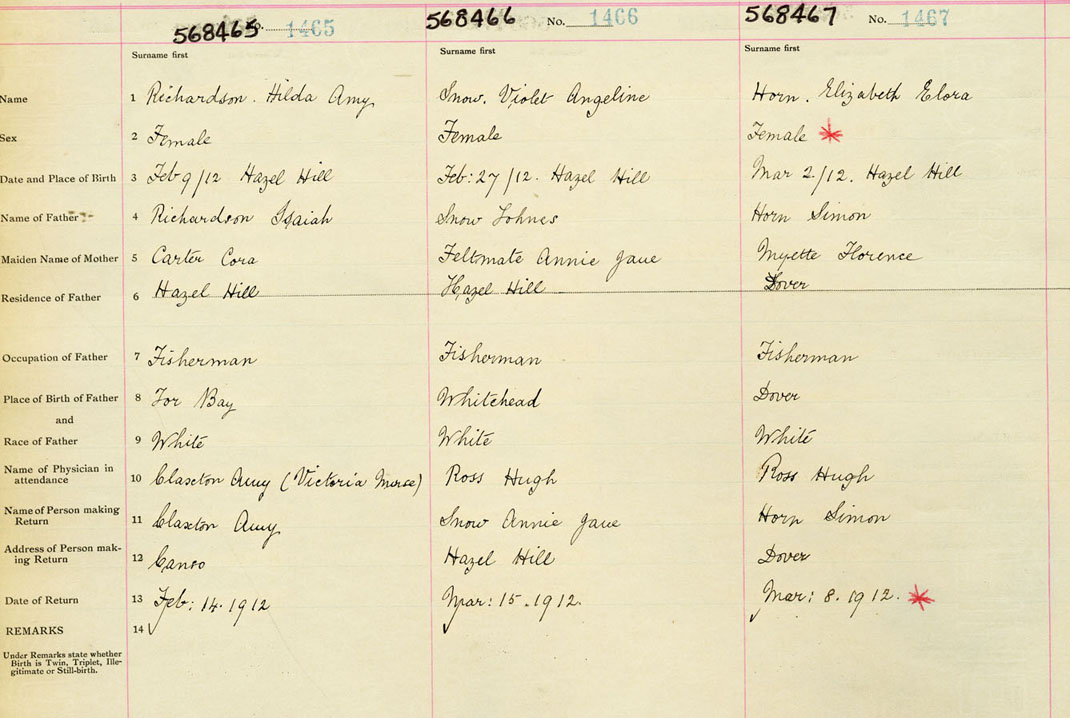 568465 No. 1465 568466 No. 1466 568467 No. 1467
Surname first Surname first Surname first
Name 1 Richardson. Hilda Amy Snow. Violet Angeline Horn. Elizabeth Elora
Sex 2 Female Female Female *
Date and Place of Birth 3 Feb 9/12 Hazel Hill Feb: 27/12. Hazel Hill Mar 2/12. Hazel Hill
Name of Father 4 Richardson Isaiah Snow Horn Simon
Maiden Name of Mother 5 Carter Cora Feltmate Annie Jane Myette Florence
Residence of Father 6 Hazel Hill Hazel Hill Dover
Occupation of Father 7 Fisherman Fisherman Fisherman
Place of Birth of Father 8 Tor Bay Whitehead Dover
and
Race of Father 9 White White White
Name of Physician in attendance 10 Claxton Amy (Victoria Nurse) Ross Hugh Ross Hugh
Name of Person making Return 11 Claxton Amy Snow Annie Jane Horn Simon
Address of Person mak-ing Return 12 Canso Hazel Hill Dover
Date of Return 13 Feb: 14. 1912 Mar: 15. 1912. Mar: 8. 1912. *
REMARKS 14
Under Remarks state whether
Birth is Twin, Triplet, Ille-
gitimate or Still-birth.